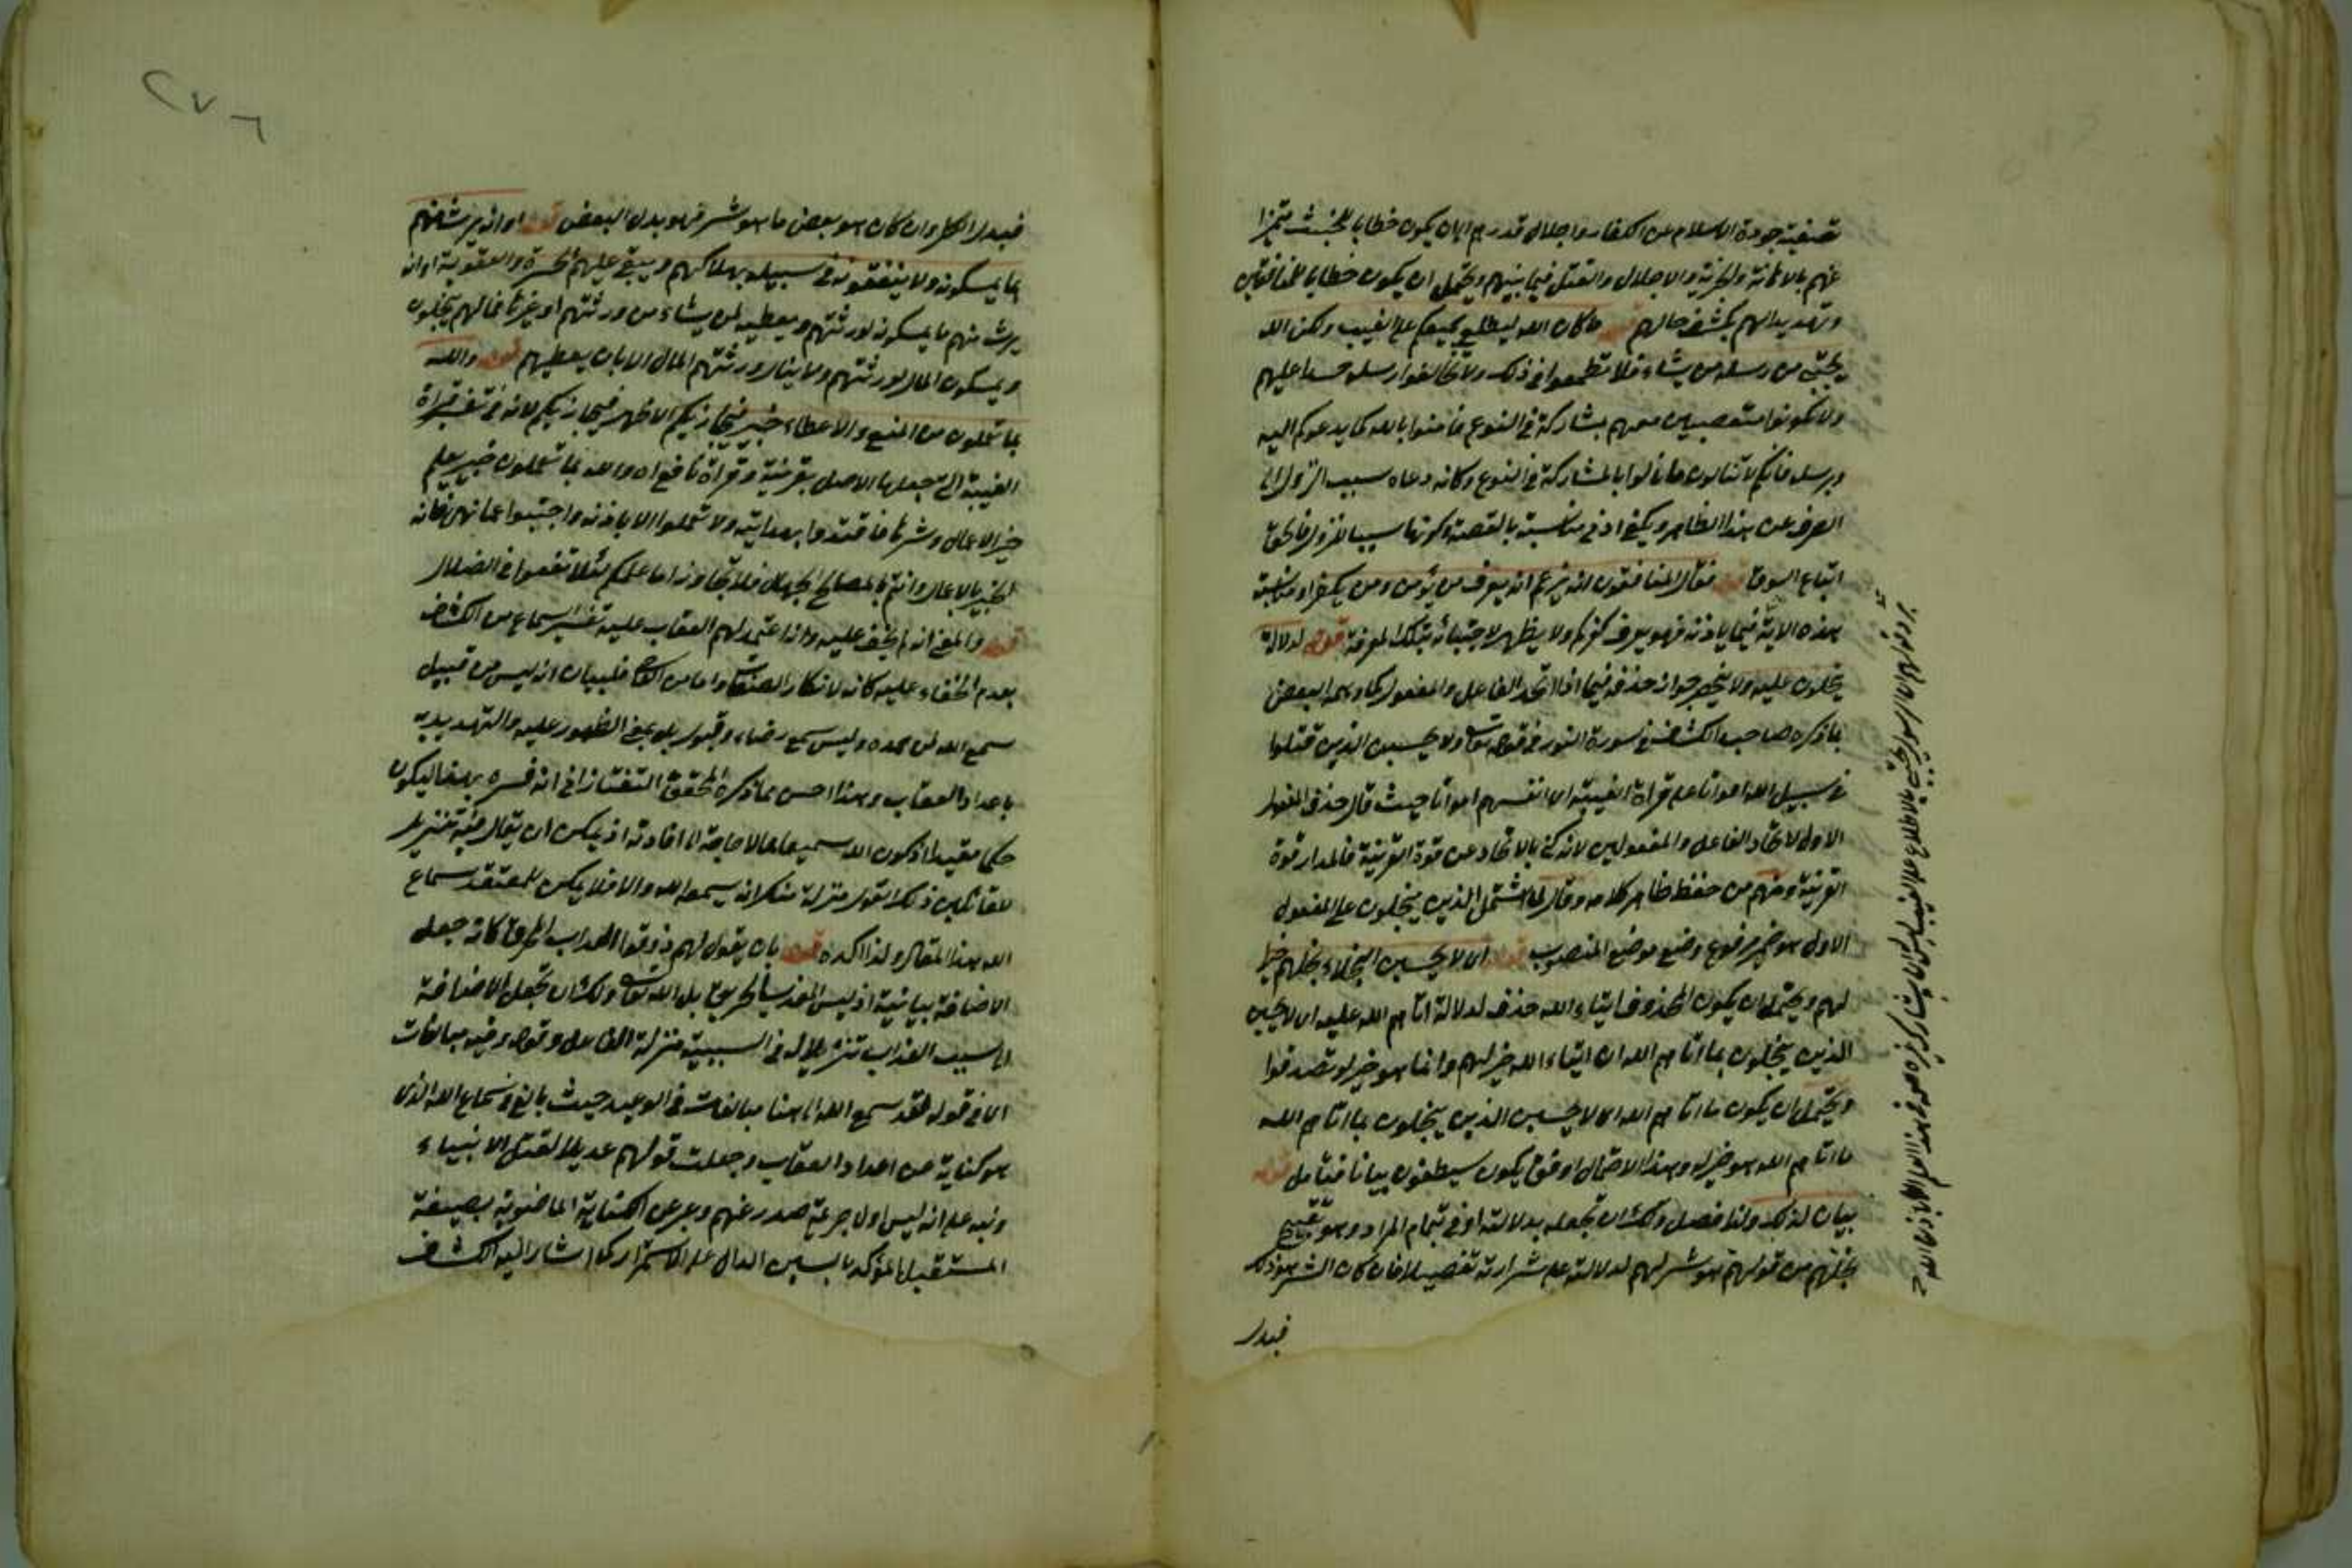 تصفية جودة الاسلام من الكفار واجلال قدرهم اى ان يكون خطابا للخبيث تميزا
عنهم بالاهانة والحزية والاجلال والقتل فيما بينهم ويحتمل ان يكون خطابا للمنافقين
وتهديدا لهم بكشف حالهم قوله ما كان الله ليطلع جميعكم على الغيب ولكن الله
يجتبى من رسله من يشاء فلا تطمعوا فى ذلك ولا تخالفوا رسله حسدا عليهم
ولا تكونوا متعصبين معهم بمشاركة فى النوع فآمنوا بالله كما يدعوكم اليه
ورسله فانكم لا تنالون ما نالوا بالمشاركة فى النوع وكانه دعاه سبب النزول الى
الصرف عن هذا الظاهر ويكفى ادنى مناسبة بالقصة وكونها سببا للنزول فالحق
اتباع السوق قوله فقال المنافقون انه يزعم انه يعرف من يؤمن ومن يكفر
هذه الآية فيما ياذنه فهو يعرف كفركم ولا يظهر لاجتبائه بتلك المعرفة قوله لدلالة
يبخلون عليه ولا يخفى جواز حذفه فيما اذا اتحد الفاعل والمفعول كما وهمه البعض
بما ذكره صاحب الكشاف فى سورة النور فى قوله تعالى ولا يحسبن الذين قتلوا
فى سبيل الله امواتا على قراءة الغيبة اى انفسهم امواتا حيث قال حذف المفعول
الاول لاتحاد الفاعل والمفعولين لانه كنى بالاتحاد عن قوة القرينة فالمدار قوة
القرينة ومنهم من حفظ ظاهر كلامه وقال لما اشتمل الذين يبخلون على المفعول
الاول هو ضمير مرفوع وضع موضع المنصوب قوله اى لا يحسبن البخلاء بخلهم خيرا
لهم ويحتمل ان يكون المحذوف ايتاء الله حذف لدلالة اتاهم الله عليه اى لا يحسبن
الذين يبخلون بما اتاهم الله ان ايتاء الله خير لهم وانما هو خير لو تصدقوا
ويحتمل ان يكون ما اتاهم الله اى لا يحسبن الذين يبخلون بما اتاهم الله
ما اتاهم الله هو خير له وهذا الاحتمال اوفق بكون سيطوقون بيانا فتأمل قوله
بيان لذلك ولذا فصل ولك ان تجعله بدلالته اوفى بتمام المراد وهو تقبيح
بخلهم من قولهم هو شر لهم لدلالته على شرارته تفصيلا فان كان الشر هو ذلك
فبدل
فبدل الكل وان كان هو بعض ما هو شر فهو بدل البعض قوله او انه يرث منهم
ما يمسكونه ولا ينفقونه فى سبيله بهلاكهم ويبقى عليهم الحسرة والعقوبة او انه
يرث منهم ما يمسكونه لورثتهم ويعطيه لمن يشاء من ورثتهم او غيرها فما لهم يبخلون
ويمسكون المال لورثتهم ولا ينال ورثتهم المال الا بان يعطيهم قوله والله
بما تعملون من المنع والاعطاء خبير فيجازيكم الاظهر فيجازيكم لانه فى تفسير قراءة
الغيبة التى جعلها الاصل بقرينة وقراءة نافع اه والله بما تعملون خبير عليم
خير الاعمال وشرها فاقتدوا بهدايته ولا تعملوا الا باذنه واجتنبوا عما نهى فانه
الخبير بالاعمال وانتم بالمصالح الجهال فلا تجاوزوا ما علمكم لئلا تقعوا فى الضلال
قوله والمعنى انه لم يخف عليه وانه اعتد لهم العقاب عليه تفسير السماع من الكشاف
بعدم الخفاء عليه كانه لانكار الصفات واما من القاضى فلبيان انه ليس من قبيل
سمع الله لمن حمده وليس سمع رضاء وقبول بل بمعنى الظهور عليه والتهديد به
باعداد العقاب وهذا احسن مما ذكره المحقق التفتازانى انه فسره بهذا ليكون
حكما مقيدا اذ كون الله سميعا مما لا حاجة الى افادته اذ يمكن ان يقال فيه تنزيل
للقائلين ذلك القول منزلة منكر انه يسمعه الله والا فلا يمكن للمعتقد سماع
الله هذا المقال ولذا اكده قوله بان يقول لهم ذوقوا العذاب الحريق كانه جعل
الاضافة بيانية اذ ليس المعذب الحريق بل الله تعالى ولك ان تجعل الاضافة
الى سبب العذاب تنزيلا له فى السببية منزلة الفاعل وقوله وفيه مبالغات
اى فى قوله لقد سمع الله الى ههنا مبالغات فى الوعيد حيث بالغ فى سماع الله الذى
هو كناية عن اعداد العقاب وجعلت قولهم عديلا لقتل الانبياء
ونبه على انه ليس اول جريمة صدر عنهم وعبر عن الكتابة الماضوية بصيغة
المستقبل المؤكد بالسين الدال على الاستمرار كما اشار اليه الكشاف
٢٧٦